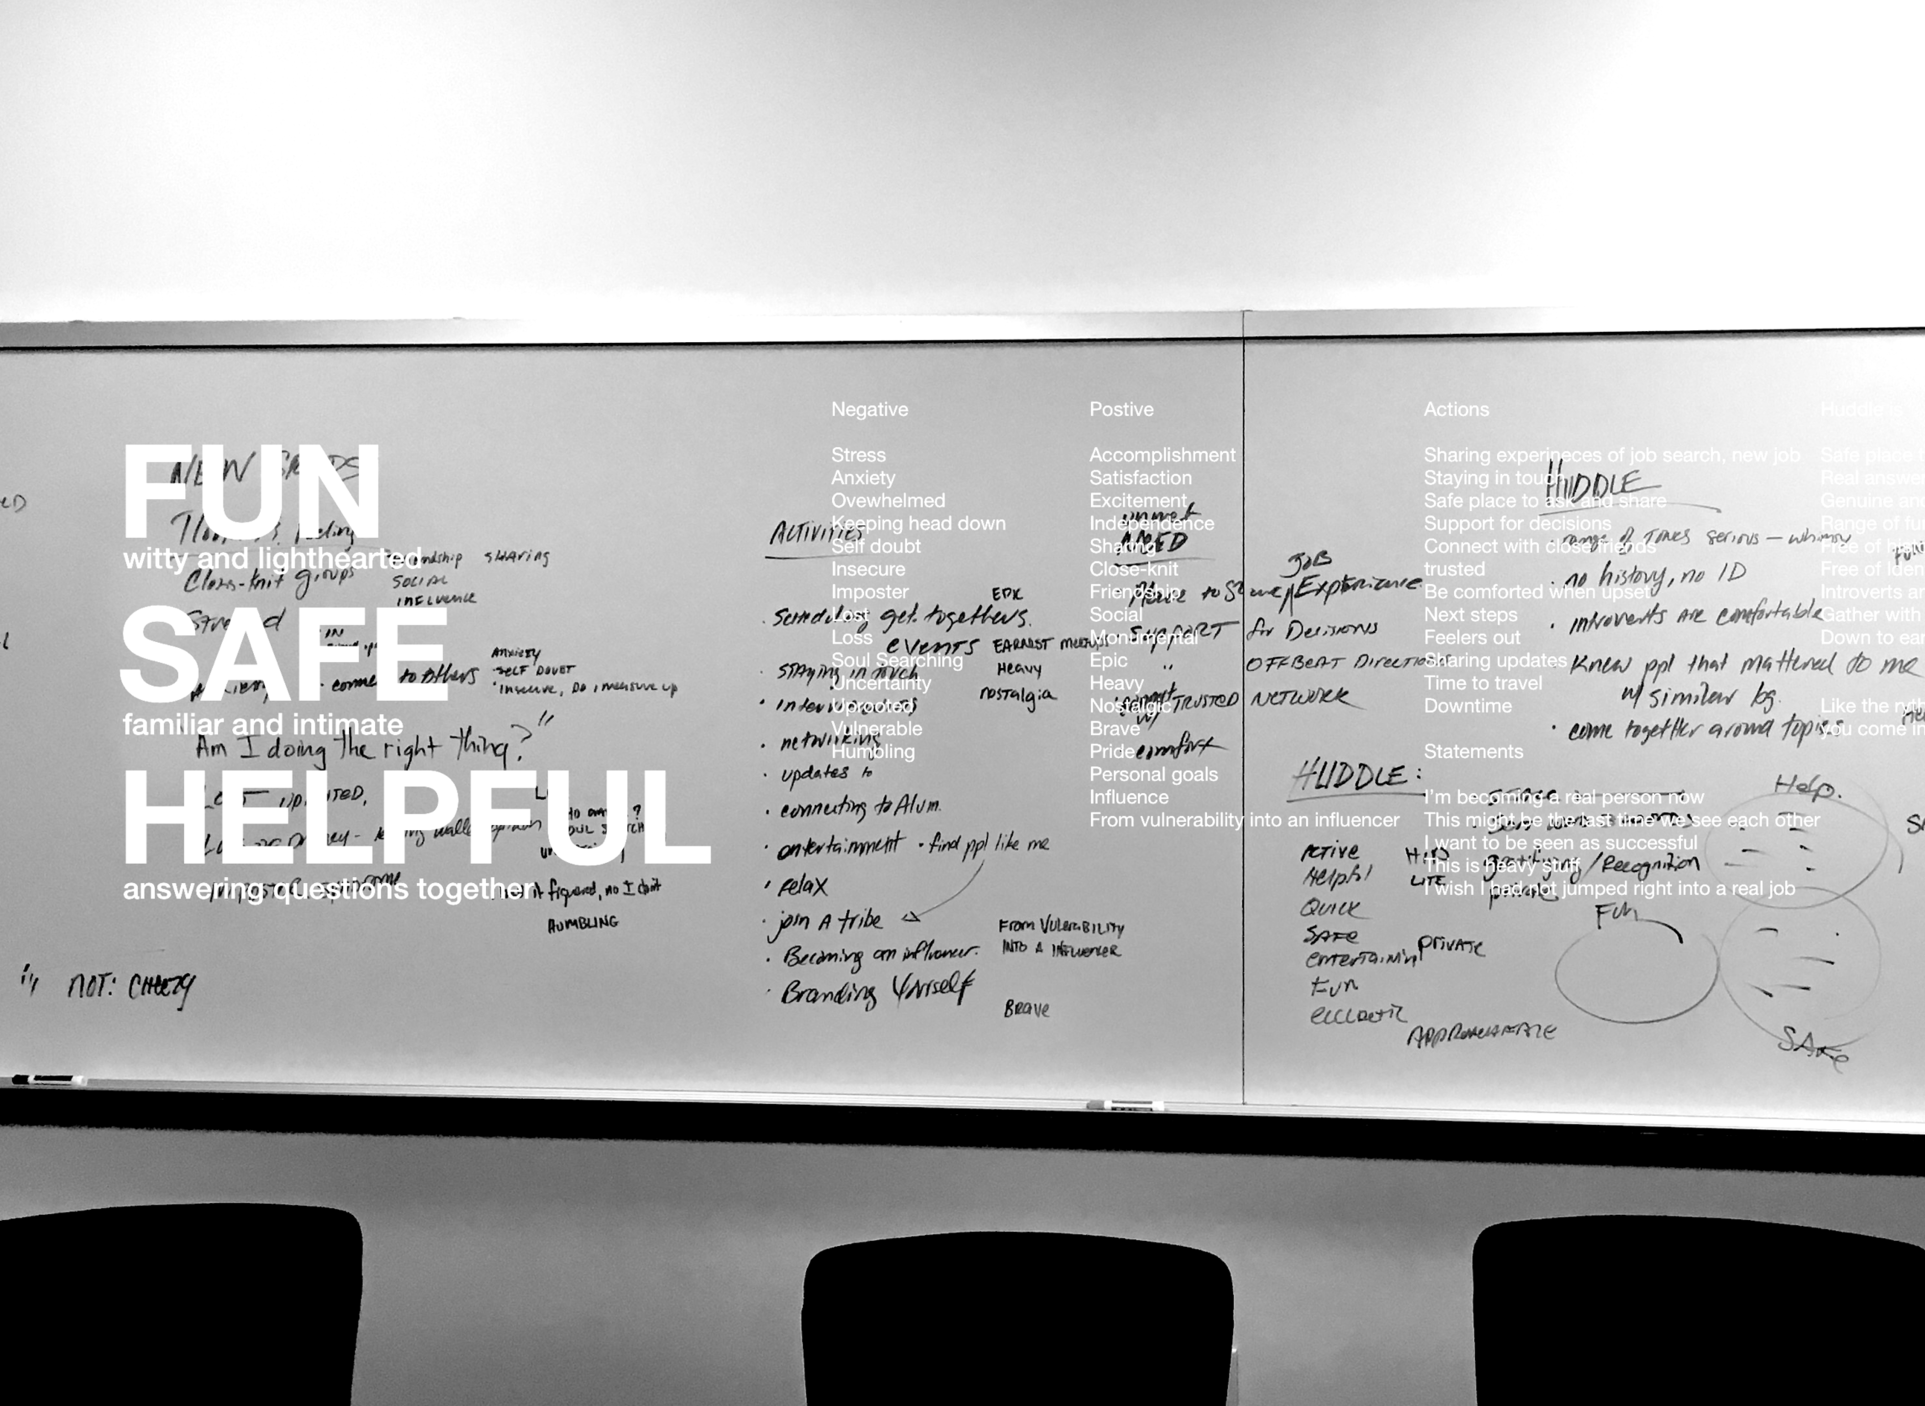 FUN
witty and lighthearted
SAFE
familiar and intimate
HELPFUL
answering questions together
Negative
Stress
Anxiety
Ovewhelmed
Keeping head down
Self doubt
Insecure
Imposter
Lost
Loss
Soul Searching
Uncertainty
Uprooted
Vulnerable
Humbling
Postive
Accomplishment
Satisfaction
Excitement
Independence
Sharing
Close-knit
Friendship
Social
Monumental
Epic
Heavy
Nostalgic
Brave
Pride
Personal goals
Influence
From vulnerability into an influencer
Actions
Sharing experineces of job search, new job
Staying in touch
Safe place to ask and share
Support for decisions
Connect with close friends
trusted
Be comforted when upset
Next steps
Feelers out
Sharing updates
Time to travel
Downtime
Statements
I'm becoming a real person now
This might be the last time we see each other
I want to be seen as successful
This is heavy stuff
I wish I had not jumped right into a real job
Huddle is
Safe place
Real answe
Genuine an
Range of fu
Free of
Free of Iden
Introverts ar
Gather with
Down to ear
Like the
you come in
NEW GRADS
feeling
Close-knit groups
SHARING
SOCIAL
INFLUENCE
Stressed
IN
ANXIETY
connect to others
SELF DOUBT
Insecure, Do I measure up
"Am I doing the right thing?"
HUMBLING
NOT: CHEEZY
ACTIVITIES
Scheduling get togethers.
EPIC
events
EARNEST
STAYING IN TOUCH
Heavy
nostalgia
interviewing
networking
updates to
connecting to Alum.
entertainment · find ppl like me
relax
join A tribe
From VULNERABILITY
INTO A INFLUENCER
Becoming an influencer.
Branding Yourself
Brave
unmet
NEED
JOB
Place to Share / Experience
SUPPORT for Decisions
" OFFBEAT DIRECTIONS
TRUSTED NETWORK
w/
comfort
HUDDLE:
Active
Helpful
Quick
SAFE
entertaining
Fun
eccletic
LITE
gratifying/Recognition
private
PRIVATE
APPROACHABLE
HUDDLE
range of tones serious - whimsy
· no history, no ID
· introverts are comfortable
Knew ppl that mattered to me
w/ similar bg.
· come together around topics
Help.
Fun
SAFE